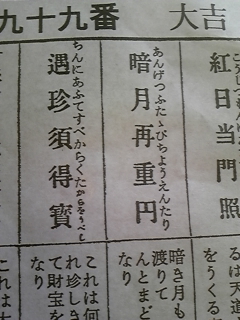 九十九番 大吉
紅日当門照
暗月再重円
あんげつふたゝびちようえんたり
遇珍須得寳
ちんにあふてすべからくたからをうべし
るは天道
をうくる
暗き月も
渡りて
んとまど
なり
これは何
れ珍しき
て財宝を
なり
これは大